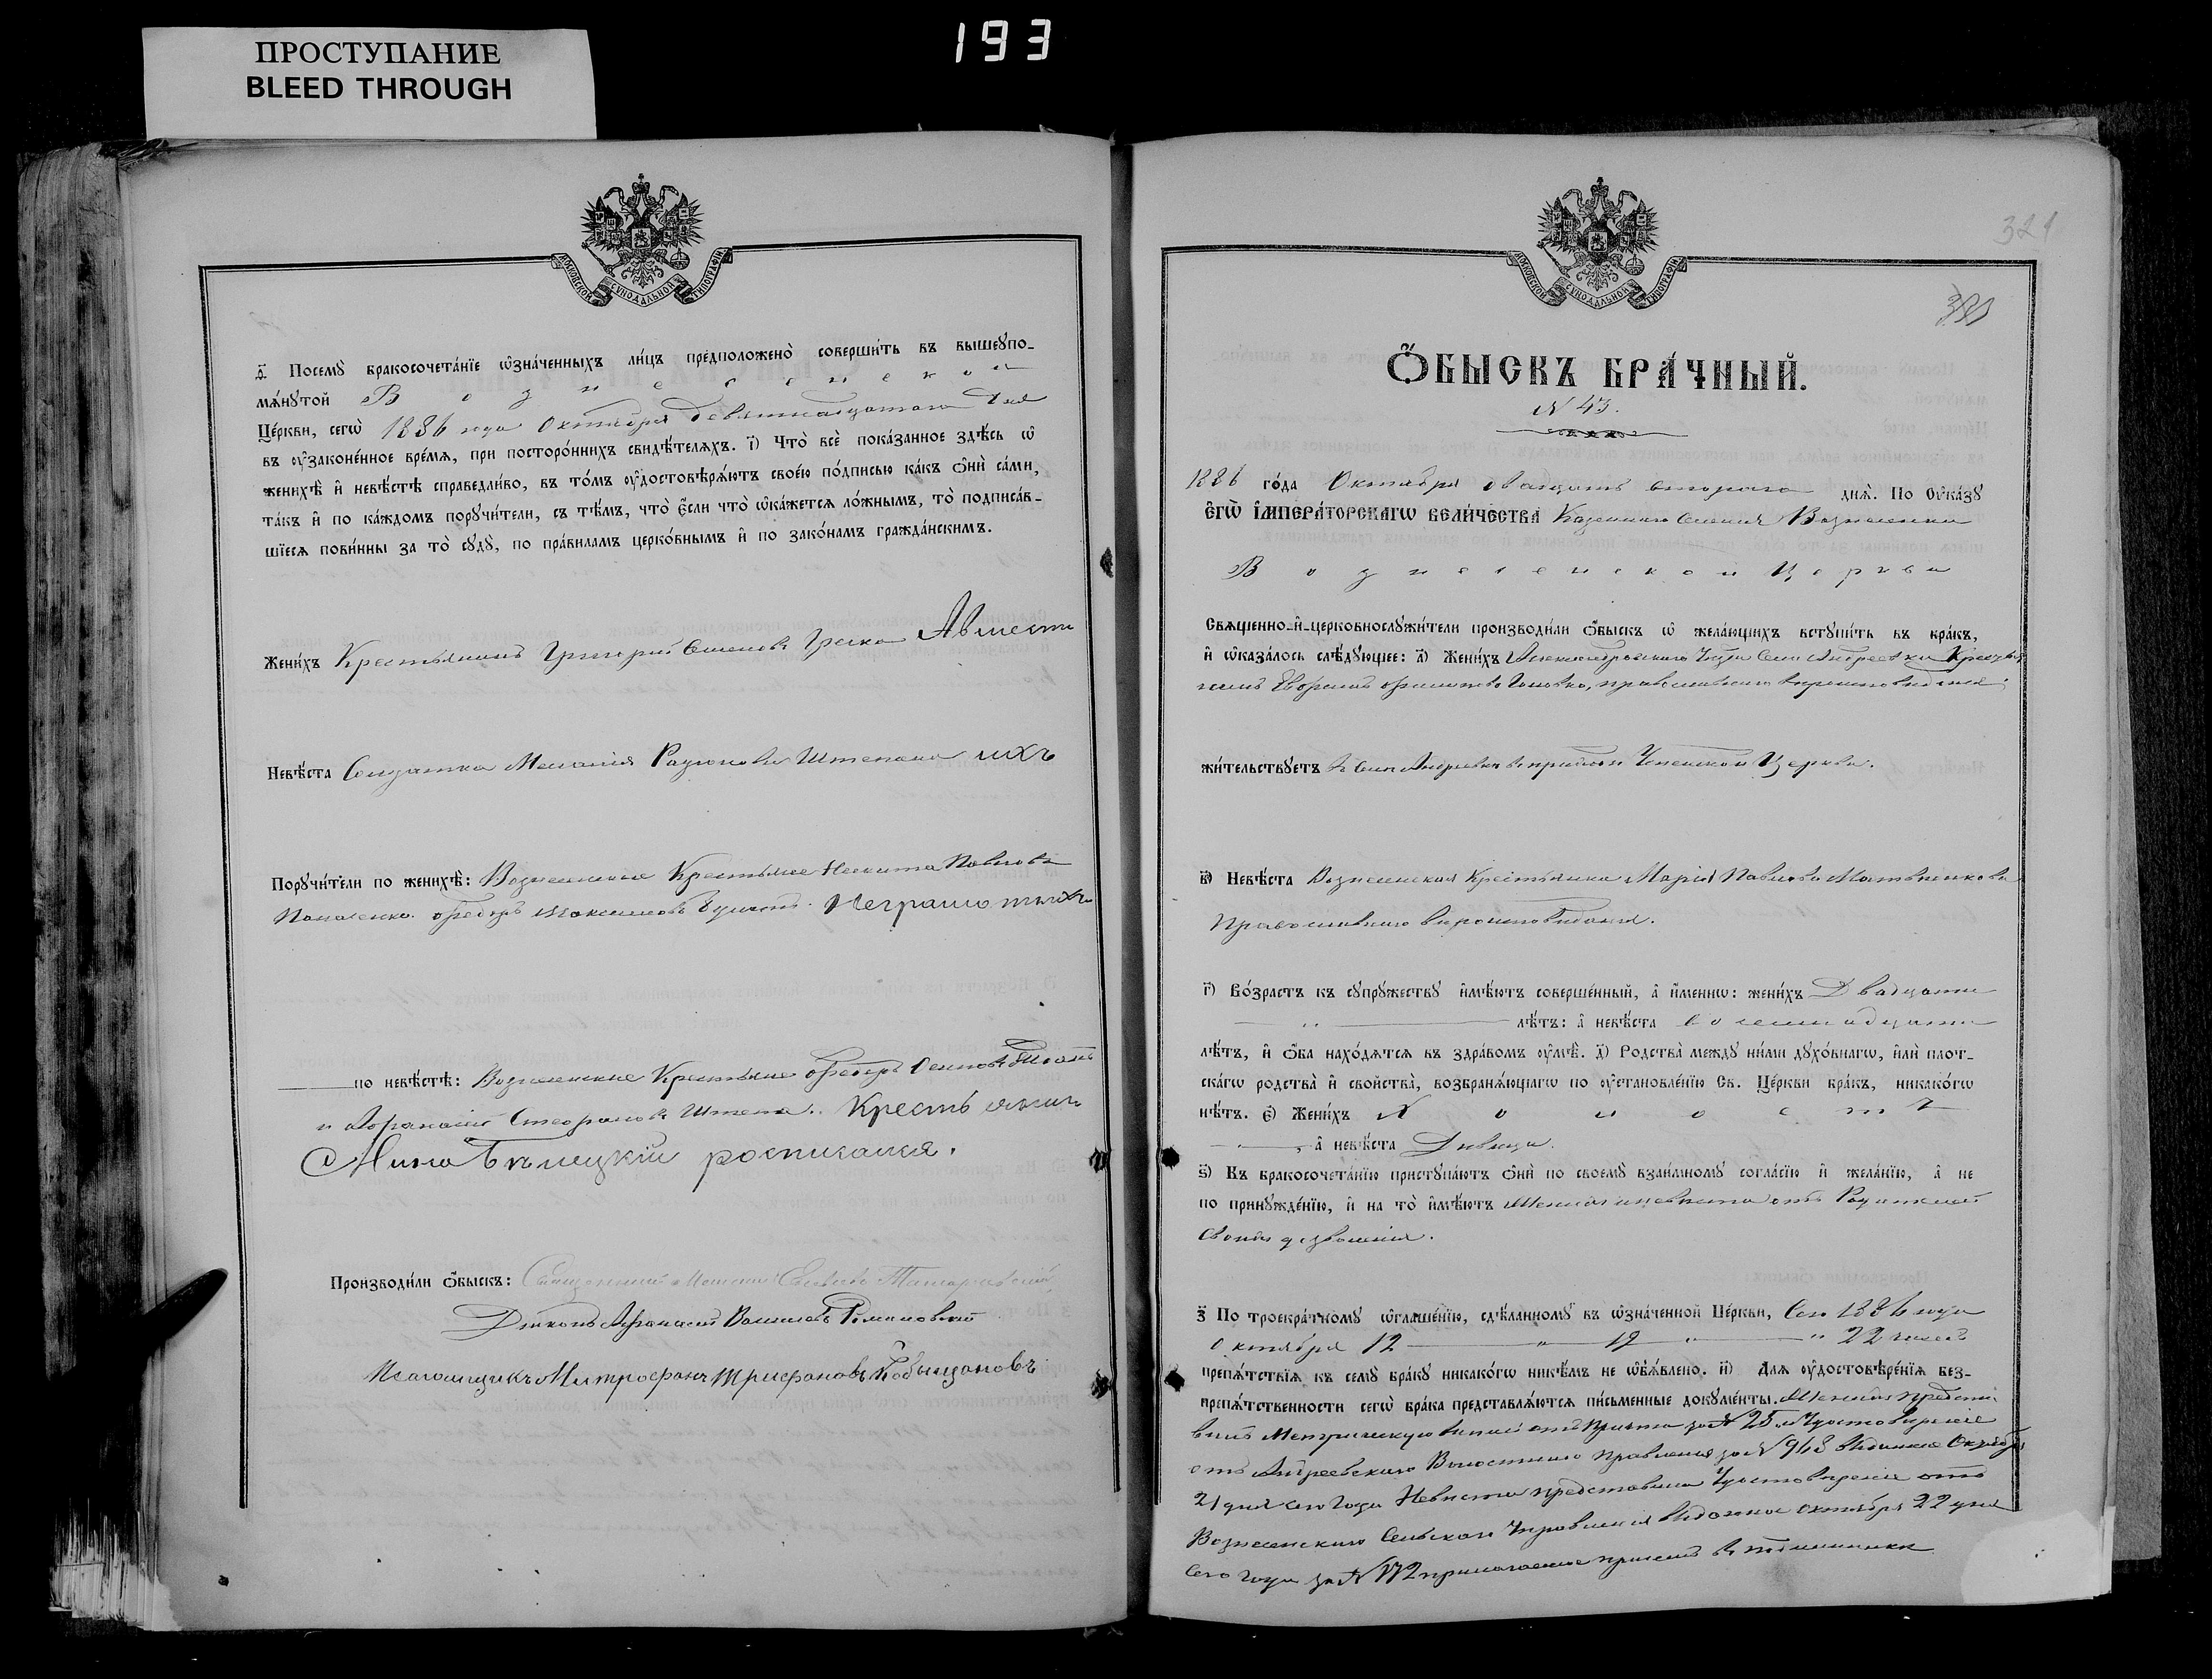 193
ПРОСТУПАНИЕ
BLEED THROUGH
МОСКОВСКОЙ СѴНОДАЛЬНОЙ ТИПОГРАФІИ
д҃ Посемꙋ̀ бракосочета́нїе ѡ҆зна́ченныхъ ли́цъ предположено̀ соверши́ть въ вышеꙋпо-
мѧ́нꙋтой Вознесенской
Це́ркви, сегѡ̀ 1886 года Октября девятнадцатаго дня
въ ᲂу҆законе́нное вре́мѧ, при посторо́ннихъ свидѣ́телѧхъ. і҃) Что̀ всѐ пока́занное здѣ́сь ѡ҆
женихѣ̀ и҆ невѣ́стѣ справедли́во, въ то́мъ ᲂу҆достовѣрѧ́ютъ свое́ю по́дписью ка́къ ѻ҆нѝ са́ми,
та́къ и҆ по ка́ждомъ порꙋчи́тели, съ тѣ́мъ, что̀ є҆́сли что̀ ѡ҆ка́жетсѧ ло́жнымъ, то̀ подписа́в-
шїесѧ пови́нны за то̀ сꙋдꙋ̀, по пра́виламъ церко́внымъ и҆ по зако́намъ гражда́нскимъ.
Жени́хъ Крестьянинъ Григорій Семеновъ
Невѣ́ста Солдатка Меланія Штепана ихъ
Порꙋчи́тели по женихѣ̀: Вознесенские Крестьяне Никита Павловъ
Ѳедоръ Максимовъ Неграмотныхъ
по невѣ́стѣ: Вознесенские Крестьяне Ѳедоръ
и Афанасий Стефановъ Штепа. Крестьянинъ
Мина Бѣлецкій росписался.
Производи́ли ѻ҆́быскъ: Священникъ
Дьяконъ Афанасій Васильевъ Романовскій
Псаломщикъ Митрофанъ Трифановъ
321
ѺБЫСКЪ БРА́ЧНЫЙ.
N 43.
1886 го́да Октября двадцать втораго днѧ̀. По Ꙋка́зꙋ
є҆гѡ̀ і҆мпера́торскагѡ вели́чества Казеннаго Селения Вознесенки
Вознесенской Церкви
Свѧще́нно-и҆-церковнослꙋжи́тели производи́ли ѻ҆́быскъ ѡ҆ жела́ющихъ встꙋпи́ть въ бра́къ,
и҆ ѡ҆каза́лось слѣ́дꙋющее: а҃) Жени́хъ Александровскаго Уезда Села Андреевки Крестья
нинъ православнаго вероисповедания
жи́тельствꙋетъ въ Селе Андреевке в приходе Успенской Церкви.
в҃) Невѣ́ста Вознесенская Крестьянка Марія Павлова
Православнаго вероисповедания.
г҃) Во́зрастъ къ сꙋпрꙋ́жествꙋ и҆мѣ́ютъ соверше́нный, а҆ и҆́меннѡ: жени́хъ Двадцати
лѣ́тъ: а҆ невѣ́ста восемнадцати
лѣ́тъ, и҆ ѻ҆́ба нахо́дѧтсѧ въ здра́вомъ ᲂу҆мѣ̀. д҃) Родства̀ междꙋ ни́ми дꙋхо́внагѡ, и҆лѝ плот-
ска́гѡ родства̀ и҆ свойства̀, возбранѧ́ющагѡ по ᲂу҆становле́нїю Св. Це́ркви бра́къ, никако́гѡ
нѣ́тъ. є҃) Жени́хъ Холостъ
а҆ невѣ́ста Девица.
ѕ҃) Къ бракосочета́нїю пристꙋпа́ютъ ѻ҆нѝ по своемꙋ̀ взаи́мномꙋ согла́сїю и҆ жела́нїю, а҆ не
по принꙋжде́нїю, и҆ на то̀ и҆мѣ́ютъ Жених и невеста отъ Родителей
своихъ дозволение.
з҃ По троекра́тномꙋ ѡ҆глаше́нїю, сдѣ́ланномꙋ въ ѡ҆зна́ченной Це́ркви, Сего 1886 года
Октября 12 " 19 " " 22 числъ
препѧ́тствїѧ къ семꙋ̀ бра́кꙋ никако́гѡ никѣ́мъ не ѡ҆б̾ѧ́влено. и҃) Длѧ ᲂу҆достовѣре́нїѧ без-
препѧ́тственности сегѡ̀ бра́ка представлѧ́ютсѧ пи́сьменные докꙋме́нты. Жених предста
вилъ Метрическую выпись отъ Причта за N 25 и Удостоверение
отъ Андреевскаго Волостнаго Правления за N 963 выданное Октября
21 дня сего года Невеста представила Удостоверение отъ
Вознесенскаго Сельскаго Управления выданное октября 22 дня
сего года за N 172